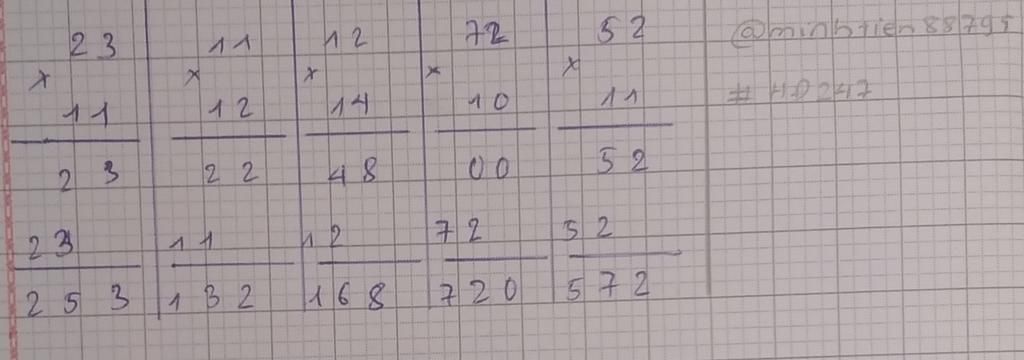 23 11 12 72 52 @minhtien88795
x x x x x
11 12 14 10 11 # HD247
23 22 48 00 52
23 11 12 72 52
253 132 168 720 572